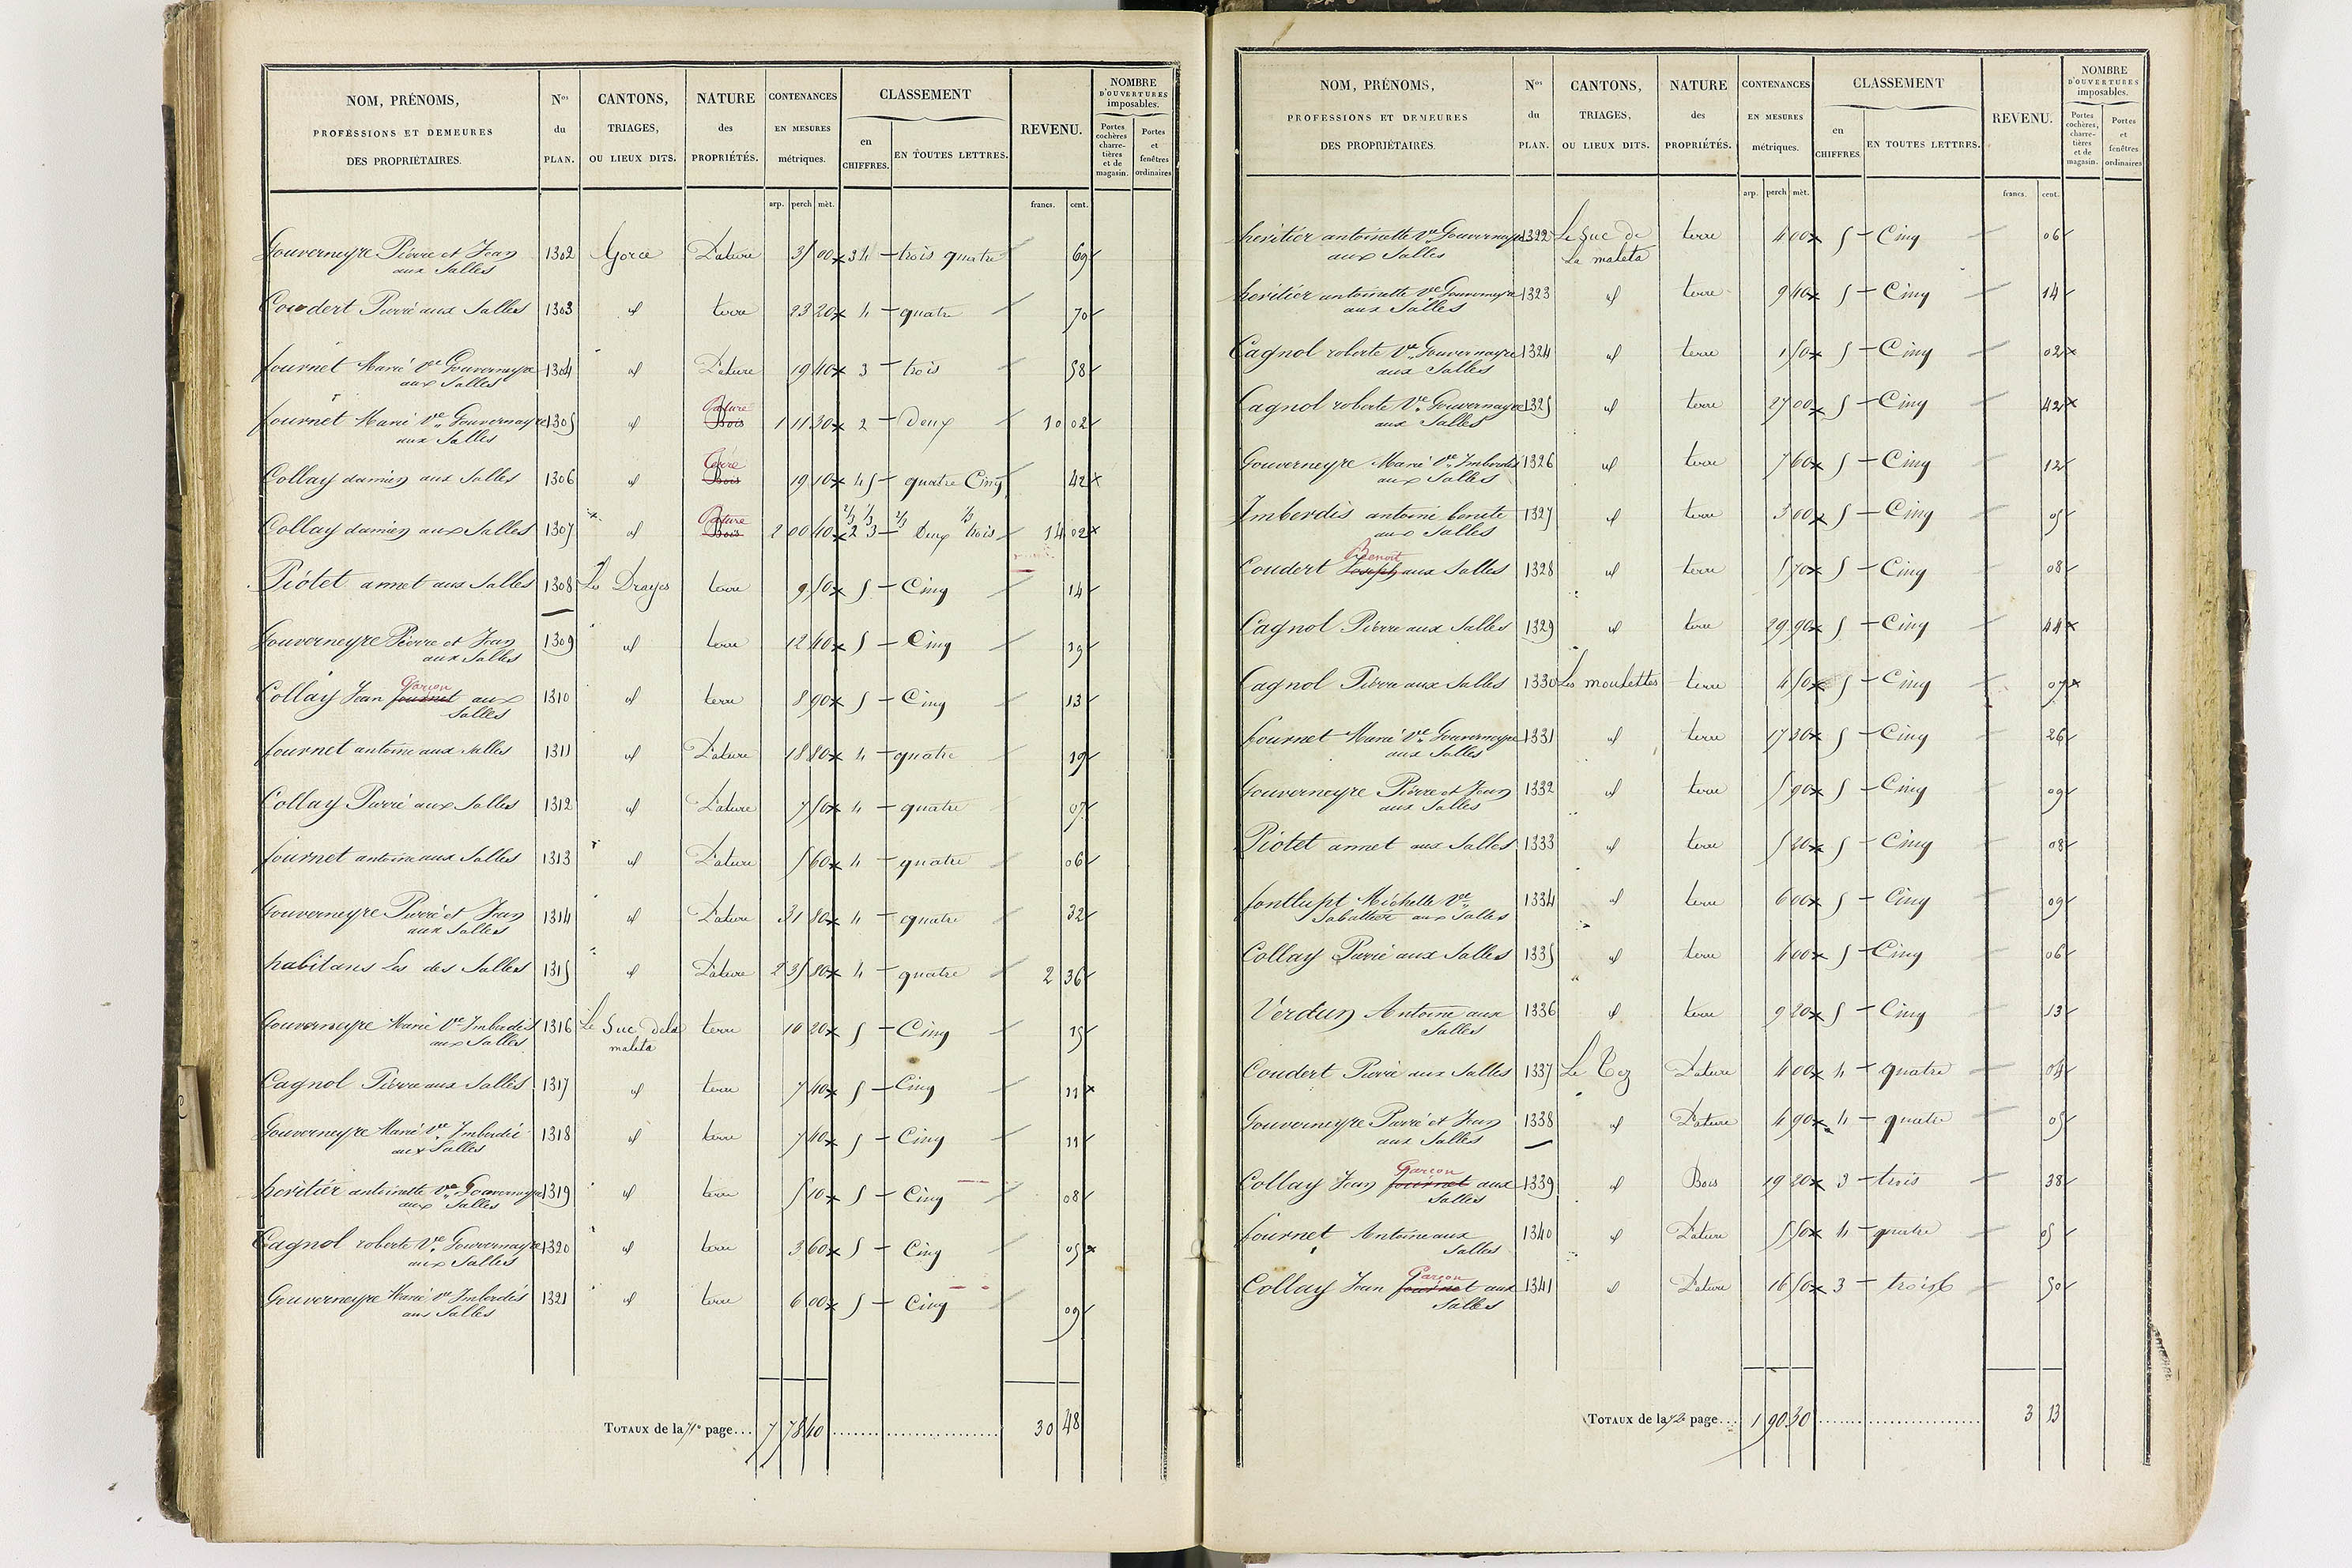 NOM, PRÉNOMS, PROFESSIONS ET DEMEURES DES PROPRIÉTAIRES. | Nos du PLAN. | CANTONS, TRIAGES, OU LIEUX DITS. | NATURE des PROPRIÉTÉS. | CONTENANCES EN MESURES métriques. | CLASSEMENT en CHIFFRES. | EN TOUTES LETTRES. | REVENU. | NOMBRE D'OUVERTURES imposables. Portes cochères charretières et de magasin. | Portes et fenêtres ordinaires
arp. perch mèt. francs. cent.
Gouverneyre Pierre et Jean 1302 Gorce Pature 35 00 3 4 trois quatre 69
aux Salles
Coudert Pierre aux Salles 1303 id terre 23 20 4 quatre 70
fournet Marie Ve Gouverneyre 1304 id Pature 19 40 3 trois 58
aux Salles
Pature
fournet Marie Ve Gouverneyre 1305 id Bois 1 11 30 2 Deux 10 02
aux Salles
terre
Collay damien aux Salles 1306 id Bois 19 10 4 5 quatre Cinq 42
Pature 2/3 1/3 2/3 1/3
Collay damien aux Salles 1307 id Bois 2 00 40 2 3 Deux trois 14 02
Piotet annet aux Salles 1308 Les Drayes terre 9 50 5 Cinq 14
Gouverneyre Pierre et Jean 1309 id terre 12 40 5 Cinq 19
aux Salles
Garcon
Collay Jean fournet aux 1310 id terre 8 90 5 Cinq 13
Salles
fournet antoine aux Salles 1311 id Pature 18 80 4 quatre 19
Collay Pierre aux Salles 1312 id Pature 7 50 4 quatre 07
fournet antoine aux Salles 1313 id Pature 5 60 4 quatre 06
Gouverneyre Pierre et Jean 1314 id Pature 31 80 4 quatre 32
aux Salles
habitans Les des Salles 1315 id Pature 2 35 80 4 quatre 2 36
Gouverneyre Marie Ve Imberdis 1316 Le Suc dela terre 10 20 5 Cinq 15
aux Salles maleta
Cagnol Pierre aux Salles 1317 id terre 7 40 5 Cinq 11
Gouverneyre Marie Ve Imberdis 1318 id terre 7 40 5 Cinq 11
aux Salles
heritier antoinette Ve Gouverneyre 1319 id terre 5 10 5 Cinq 08
aux Salles
Cagnol roberte Ve Gouverneyre 1320 id terre 3 60 5 Cinq 05
aux Salles
Gouverneyre Marie Ve Imberdis 1321 id terre 6 00 5 Cinq 09
aux Salles
TOTAUX de la 71e page.... 7 78 40 30 48
NOM, PRÉNOMS, PROFESSIONS ET DEMEURES DES PROPRIÉTAIRES. | Nos du PLAN. | CANTONS, TRIAGES, OU LIEUX DITS. | NATURE des PROPRIÉTÉS. | CONTENANCES EN MESURES métriques. | CLASSEMENT en CHIFFRES. | EN TOUTES LETTRES. | REVENU. | NOMBRE D'OUVERTURES imposables. Portes cochères, charretières et de magasin. | Portes et fenêtres ordinaires
arp. perch mèt. francs. cent.
heritier antoinette Ve Gouverneyre 1322 Le Suc de terre 4 00 5 Cinq 06
aux Salles La maleta
heritier antoinette Ve Gouverneyre 1323 id terre 9 40 5 Cinq 14
aux Salles
Cagnol roberte Ve Gouverneyre 1324 id terre 1 50 5 Cinq 02
aux Salles
Cagnol roberte Ve Gouverneyre 1325 id terre 27 00 5 Cinq 42
aux Salles
Gouverneyre Marie Ve Imberdis 1326 id terre 7 60 5 Cinq 12
aux Salles
Imberdis antoine 1327 id terre 3 00 5 Cinq 05
aux Salles
Benoit
Coudert Joseph aux Salles 1328 id terre 5 70 5 Cinq 08
Cagnol Pierre aux Salles 1329 id terre 29 90 5 Cinq 44
Cagnol Pierre aux Salles 1330 Les moulettes terre 4 50 5 Cinq 07
fournet Marie Ve Gouverneyre 1331 id terre 17 30 5 Cinq 26
aux Salles
Gouverneyre Pierre et Jean 1332 id terre 5 90 5 Cinq 09
aux Salles
Piotet annet aux Salles 1333 id terre 5 20 5 Cinq 08
fontlupt Michelle Ve 1334 id terre 6 00 5 Cinq 09
Sabattier aux Salles
Collay Pierre aux Salles 1335 id terre 4 00 5 Cinq 06
Verdun Antoine aux 1336 id terre 9 20 5 Cinq 13
Salles
Coudert Pierre aux Salles 1337 Le Pature 4 00 4 quatre 04
Gouverneyre Pierre et Jean 1338 id Pature 4 90 4 quatre 05
aux Salles
Garcon
Collay Jean fournet aux 1339 id Bois 19 20 3 trois 38
Salles
fournet Antoine aux 1340 id Pature 5 50 4 quatre 05
Salles
Garcon
Collay Jean fournet aux 1341 id Pature 16 50 3 trois 50
Salles
TOTAUX de la 72e page.... 1 90 30 3 13